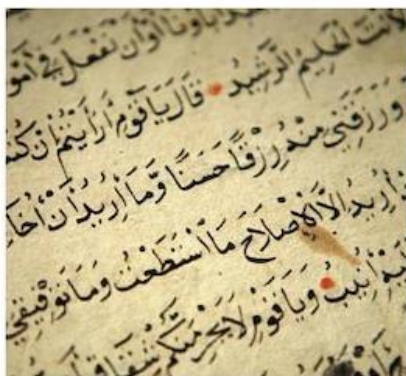 اباونا أَوْ أَنْ نَفْعَلَ فِي أَمْو
لَأَنْتَ الْحَلِيمُ الرَّشِيدُ قَالَ يَا قَوْمِ أَرَأَيْتُمْ إِنْ كُنْت
وَرَزَقَنِي مِنْهُ رِزْقًا حَسَنًا وَّمَا أُرِيدُ أَنْ أُخَا
أُرِيدُ إِلَّا الْإِصْلَاحَ مَا اسْتَطَعْتُ وَمَا تَوْفِيقِي
لَيْهِ أُنِيبُ وَيَا قَوْمِ لَا يَجْرِمَنَّكُمْ شِقَاقِي